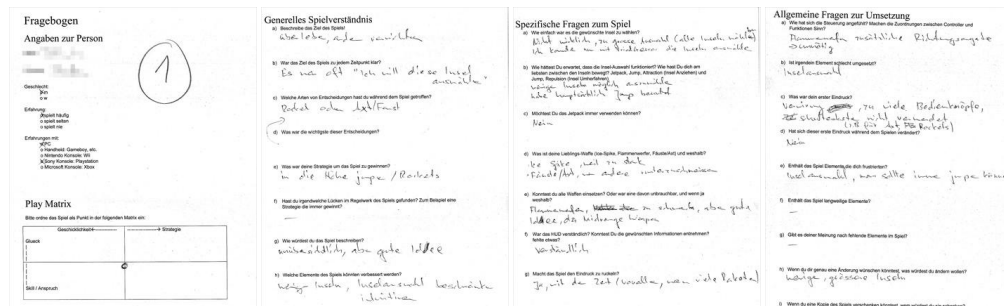 Fragebogen
Angaben zur Person
1
Geschlecht:
m
o w
Erfahrung:
spielt häufig
o spielt selten
o spielt nie
Erfahrungen mit:
PC
o Handheld: Gameboy, etc.
o Nintendo Konsole: Wii
Sony Konsole: Playstation
o Microsoft Konsole: Xbox
Play Matrix
Bitte ordne das Spiel als Punkt in der folgenden Matrix ein:
Geschicklichkeit Strategie
Glueck
Skill / Anspruch
Generelles Spielverständnis
a) Beschreibe das Ziel des Spiels?
überleben, andere vernichten
b) War der Ziel des Spiels zu jedem Zeitpunkt klar?
Es war oft "Ich will diese Insel auswählen"
c) Welche Arten von Entscheidungen hast du während dem Spiel getroffen?
Rocket oder Axt/Faust
d) Was war die wichtigste dieser Entscheidungen?
e) Was war deine Strategie um das Spiel zu gewinnen?
in die Höhe jumpen / Rockets
f) Hast du irgendwelche Lücken im Regelwerk des Spiels gefunden? Zum Beispiel eine
Strategie die immer gewinnt?
—
g) Wie würdest du das Spiel beschreiben?
unübersichtlich, aber gute Idee
h) Welche Elemente des Spiels könnten verbessert werden?
weniger Inseln, Inselauswahl
intuitiver
Spezifische Fragen zum Spiel
a) Wie einfach war es die gewünschte Insel zu wählen?
Nicht wirklich, zu grosse Auswahl
b) Wie hättest Du erwartet, dass die Insel-Auswahl funktioniert? Wie hast Du dich am
liebsten zwischen den Inseln bewegt? Jetpack, Jump, Attraction (Insel Anziehen) und
Jump, Repulsion (Insel Umherfahren)
weniger Inseln möglich
habe hauptsächlich Jump benutzt
c) Möchtest Du das Jetpack immer verwenden können?
Nein
d) Was ist deine Lieblings-Waffe (Ice-Spike, Flammenwerfer, Fäuste/Axt) und weshalb?
e) Konntest du alle Waffen einsetzen? Oder war eine davon unbrauchbar, und wenn ja
weshalb?
Flammenwerfer, zu schwach, aber gute
Idee,
f) War das HUD verständlich? Konntest Du die gewünschten Informationen entnehmen?
fehlte etwas?
verständlich
g) Macht das Spiel den Eindruck zu ruckeln?
Ja, mit der Zeit / wenn viele Raketen
Allgemeine Fragen zur Umsetzung
a) Wie hat sich die Steuerung angefühlt? Machen die Zuordnungen zwischen Controller und
Funktionen Sinn?
Flammenwerfer zusätzliche Richtungsangabe
unnötig
b) Ist irgendein Element schlecht umgesetzt?
Inselauswahl
c) Was war dein erster Eindruck?
Verwirrung, zu viele Bedienknöpfe,
Schultertasten nicht verwendet
d) Hat sich dieser erste Eindruck während dem Spielen verändert?
Nein
e) Enthält das Spiel Elemente die dich frustrierten?
Inselauswahl, man sollte immer jumpen können
f) Enthält das Spiel langweilige Elemente?
—
g) Gibt es deiner Meinung nach fehlende Elemente im Spiel?
—
h) Wenn du dir genau eine Änderung wünschen könntest, was würdest du ändern wollen?
weniger, grössere Inseln